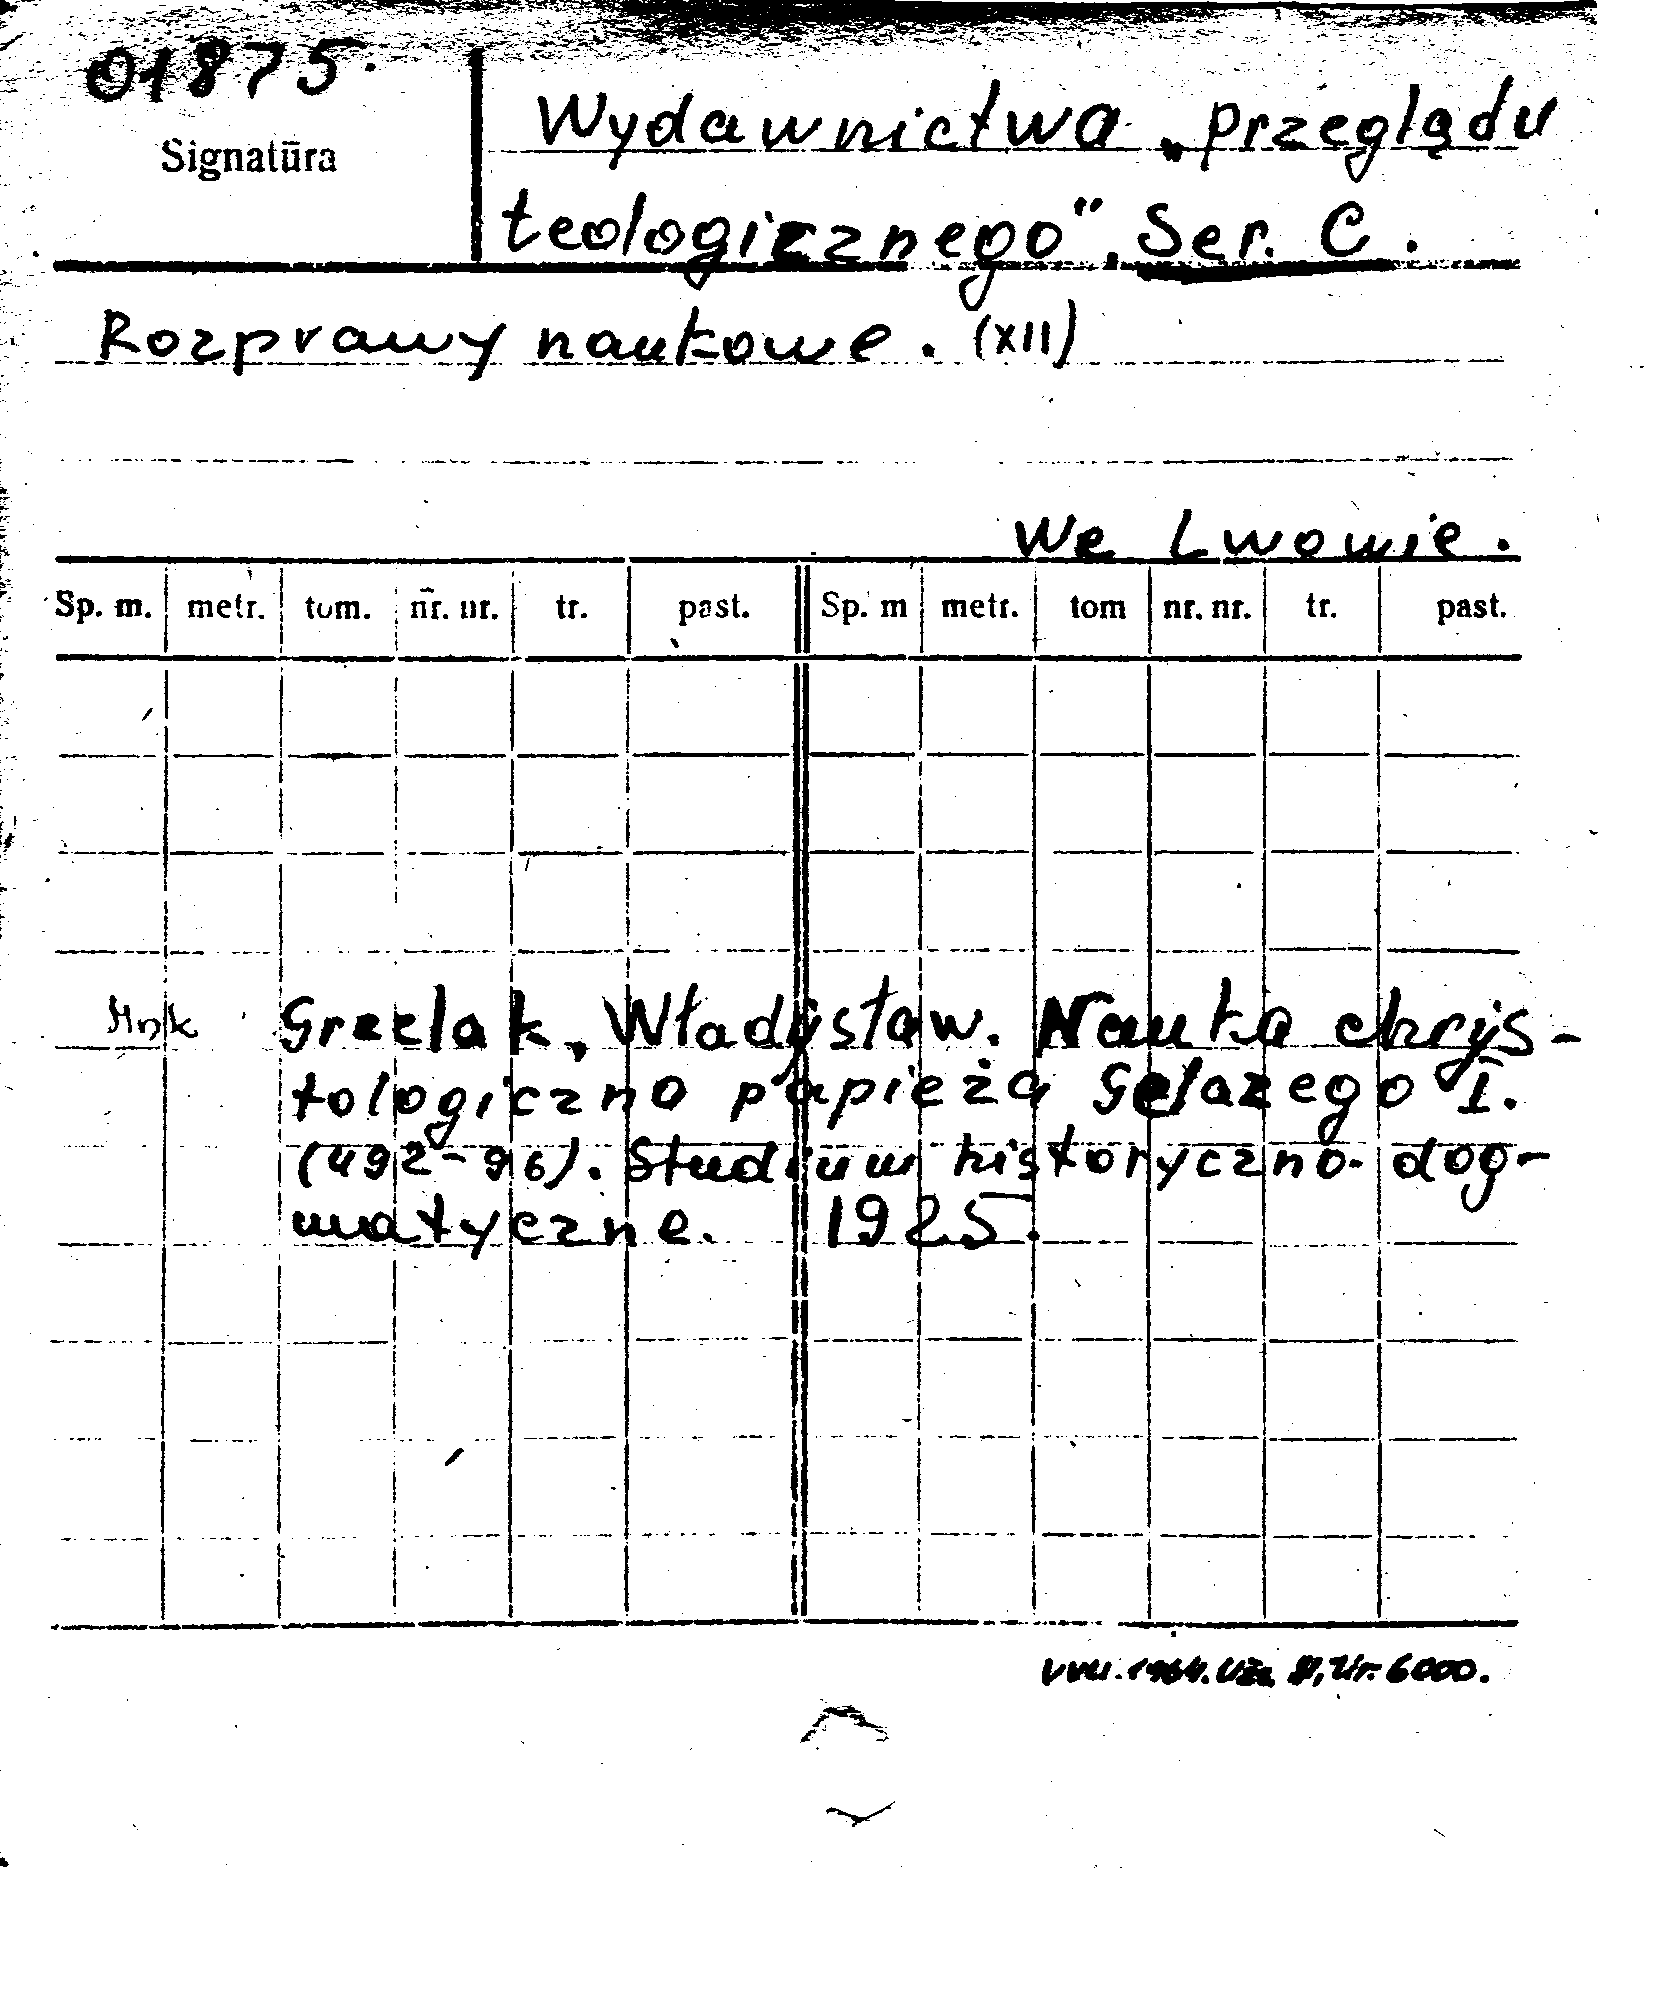 01875.
Signatūra
Wydawnictwa „przeglądu
teologicznego". Ser. C.
Rozprawy naukowe. (XII)
We Lwowie.
Sp. m. metr. tom. nr. nr. tr. past. Sp. m metr. tom nr. nr. tr. past.
Mnk Grzelak, Władysław. Nauka chrys-
tologiczno papieża Gelazego I.
(492-96). Studium historyczno-dog-
matyczne. 1925.
6000.